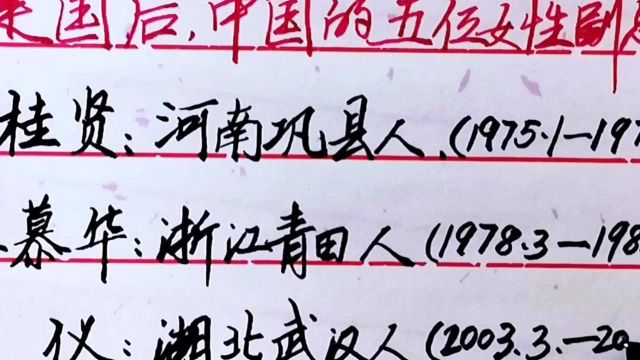 国后,中国的五位女性副
桂贤:河南巩县人.(1975.1—197
慕华:浙江青田人(1978.3—198
仪:湖北武汉人(2003.3.—20